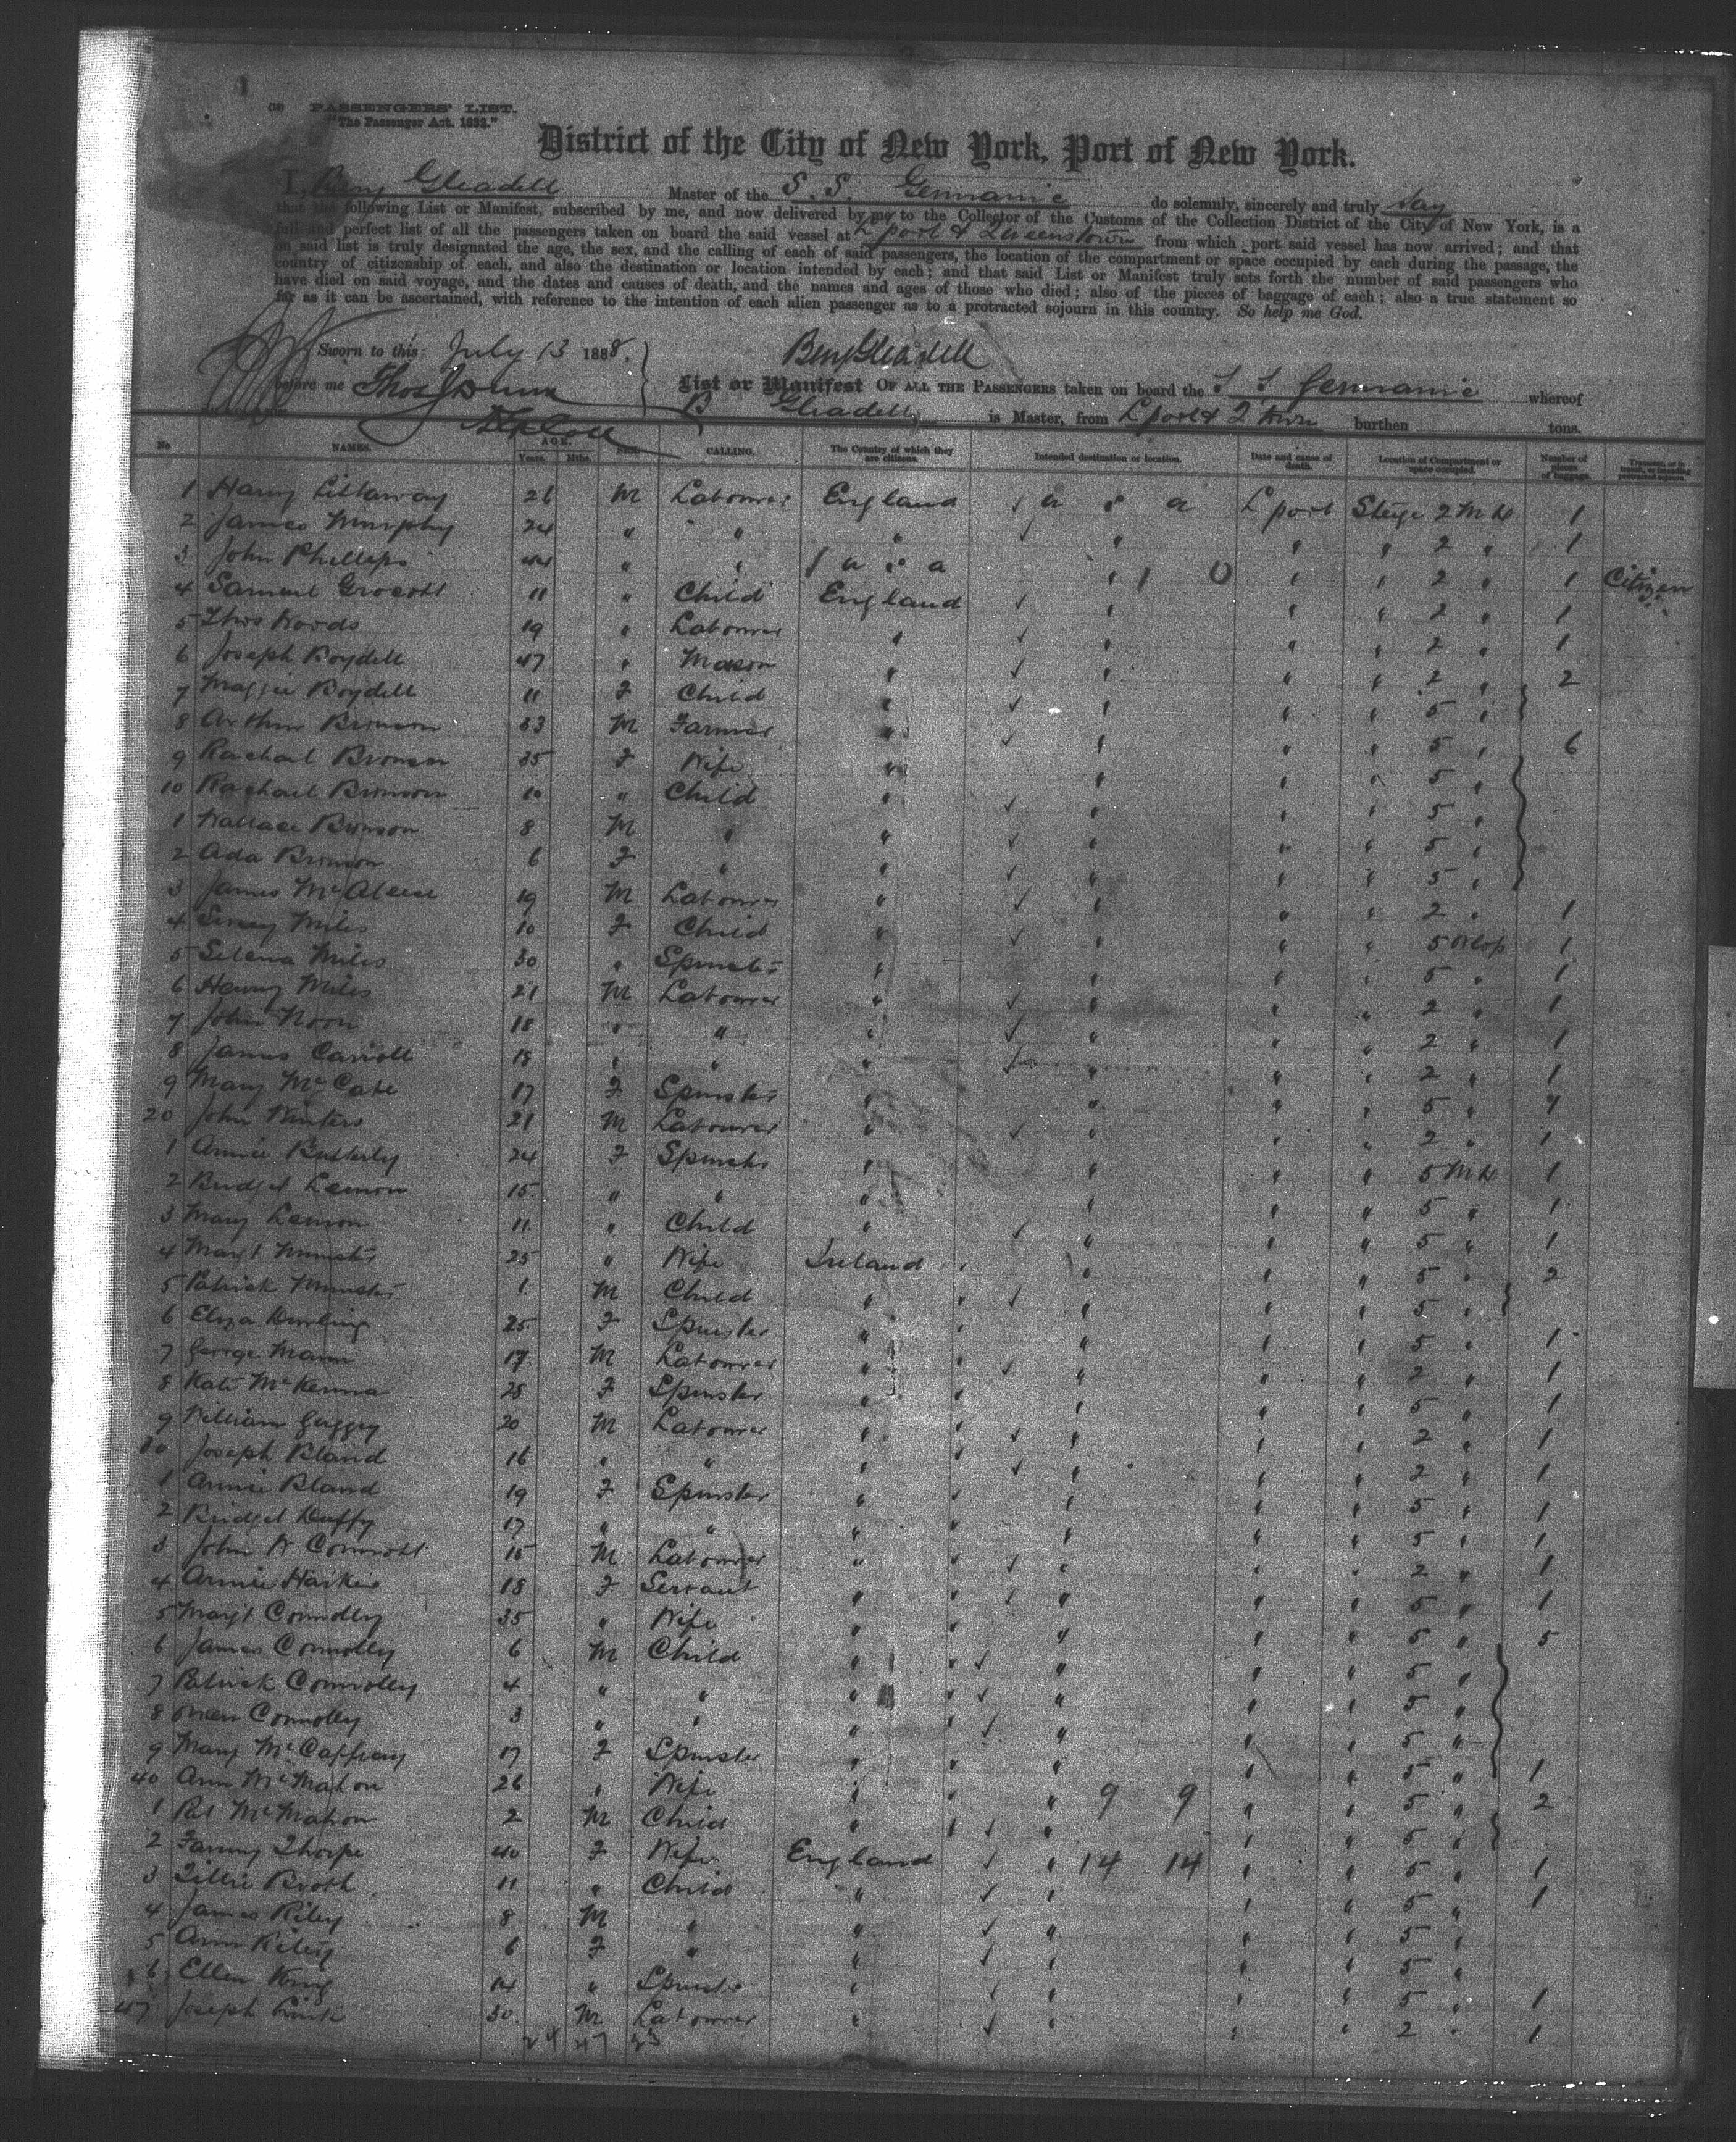 PASSENGERS' LIST.
"The Passenger Act. 1882."
District of the City of New York, Port of New York.
I, Benj Gleadell Master of the S. S. Germanic do solemnly, sincerely and truly say
that the following List or Manifest, subscribed by me, and now delivered by me to the Collector of the Customs of the Collection District of the City of New York, is a
full and perfect list of all the passengers taken on board the said vessel at L'pool & Queenstown from which port said vessel has now arrived; and that
on said list is truly designated the age, the sex, and the calling of each of said passengers, the location of the compartment or space occupied by each during the passage, the
country of citizenship of each, and also the destination or location intended by each; and that said List or Manifest truly sets forth the number of said passengers who
have died on said voyage, and the dates and causes of death, and the names and ages of those who died; also of the pieces of baggage of each; also a true statement so
far as it can be ascertained, with reference to the intention of each alien passenger as to a protracted sojourn in this country. So help me God.
Sworn to this July 13 1888. Benj Gleadell
before me Thos Dunn List or Manifest OF ALL THE PASSENGERS taken on board the S S Germanic whereof
B Gleadell is Master, from L'pool & Q'town burthen tons.
No NAMES. AGE. Years. Mths. SEX. CALLING. The Country of which they are citizens. Intended destination or location. Date and cause of death. Location of Compartment or space occupied. Number of pieces of baggage.
1 Harry 26 M Labourer England u s a L'pool Stege 2 M dk 1
2 James Murphy 24 " " " " " " 2 " 1
3 John Phillips 44 " " u s a " 1 0 " " 2 " 1 Citizen
4 Samuel Grocott 11 " Child England " " " 2 " 1
5 Thos Woods 19 " Labourer " " " " 2 " 1
6 Joseph Boydell 47 " Mason " " " " 2 " 2
7 Maggie Boydell 11 F Child " " " " 5 "
8 Arthur Bronson 33 M Farmer " " " " 5 " 6
9 Rachael Bronson 35 F Wife " " " " 5 "
10 Rachael Bronson 10 " Child " " " " 5 "
1 Wallace Bronson 8 M " " " " " 5 "
2 Ada Bronson 6 F " " " " " 5 "
3 James McAleese 19 M Labourer " " " " 2 " 1
4 Miles 10 F Child " " " " 5 Orlop 1
5 Selena Miles 30 " Spinster " " " " 5 " 1
6 Henry Miles 21 M Labourer " " " " 2 " 1
7 John Noon 18 " " " " " " 2 " 1
8 James Carroll 18 " " " " " " 2 " 1
9 Mary McCabe 17 F Spinster " " " " 5 "
20 John Winters 21 M Labourer " " " " 2 " 1
1 Annie Butterly 24 F Spinster " " " " 5 M dk 1
2 Bridget Lennon 15 " " " " " " 5 " 1
3 Mary Lennon 11 " Child " " " " 5 " 1
4 Margt Munster 25 " Wife Ireland " " " 5 " 2
5 Patrick Munster 1 M Child " " " " 5 "
6 Eliza 25 F Spinster " " " " 5 " 1
7 George Mann 17 M Labourer " " " " 2 " 1
8 Kate McKenna 28 F Spinster " " " " 5 " 1
9 William 20 M Labourer " " " " 2 " 1
30 Joseph Bland 16 " " " " " " 2 " 1
1 Annie Bland 19 F Spinster " " " " 5 " 1
2 Bridget Duffy 17 " " " " " " 5 " 1
3 John W 15 M Labourer " " " " 2 " 1
4 Annie Harkin 18 F Servant " " " " 5 " 1
5 Margt Connolly 35 " Wife " " " " 5 " 5
6 James Connolly 6 M Child " " " " 5 "
7 Patrick Connolly 4 " " " " " " 5 "
8 Owen Connolly 3 " " " " " " 5 "
9 Mary McCaffrey 17 F Spinster " " " " 5 " 1
40 Ann McMahon 26 " Wife " " 9 9 " " 5 " 2
1 Pat McMahon 2 M Child " " " " 5 "
2 Fanny Thorpe 40 F Wife England " 14 14 " " 5 " 1
3 Tillie Booth 11 " Child " " " " 5 " 1
4 James Riley 8 M " " " " " 5 "
5 Ann Riley 6 F " " " " " 5 "
6 Ellen King 14 " Spinster " " " " 5 " 1
47 Joseph 30 M Labourer " " " " 2 " 1
24 47 23